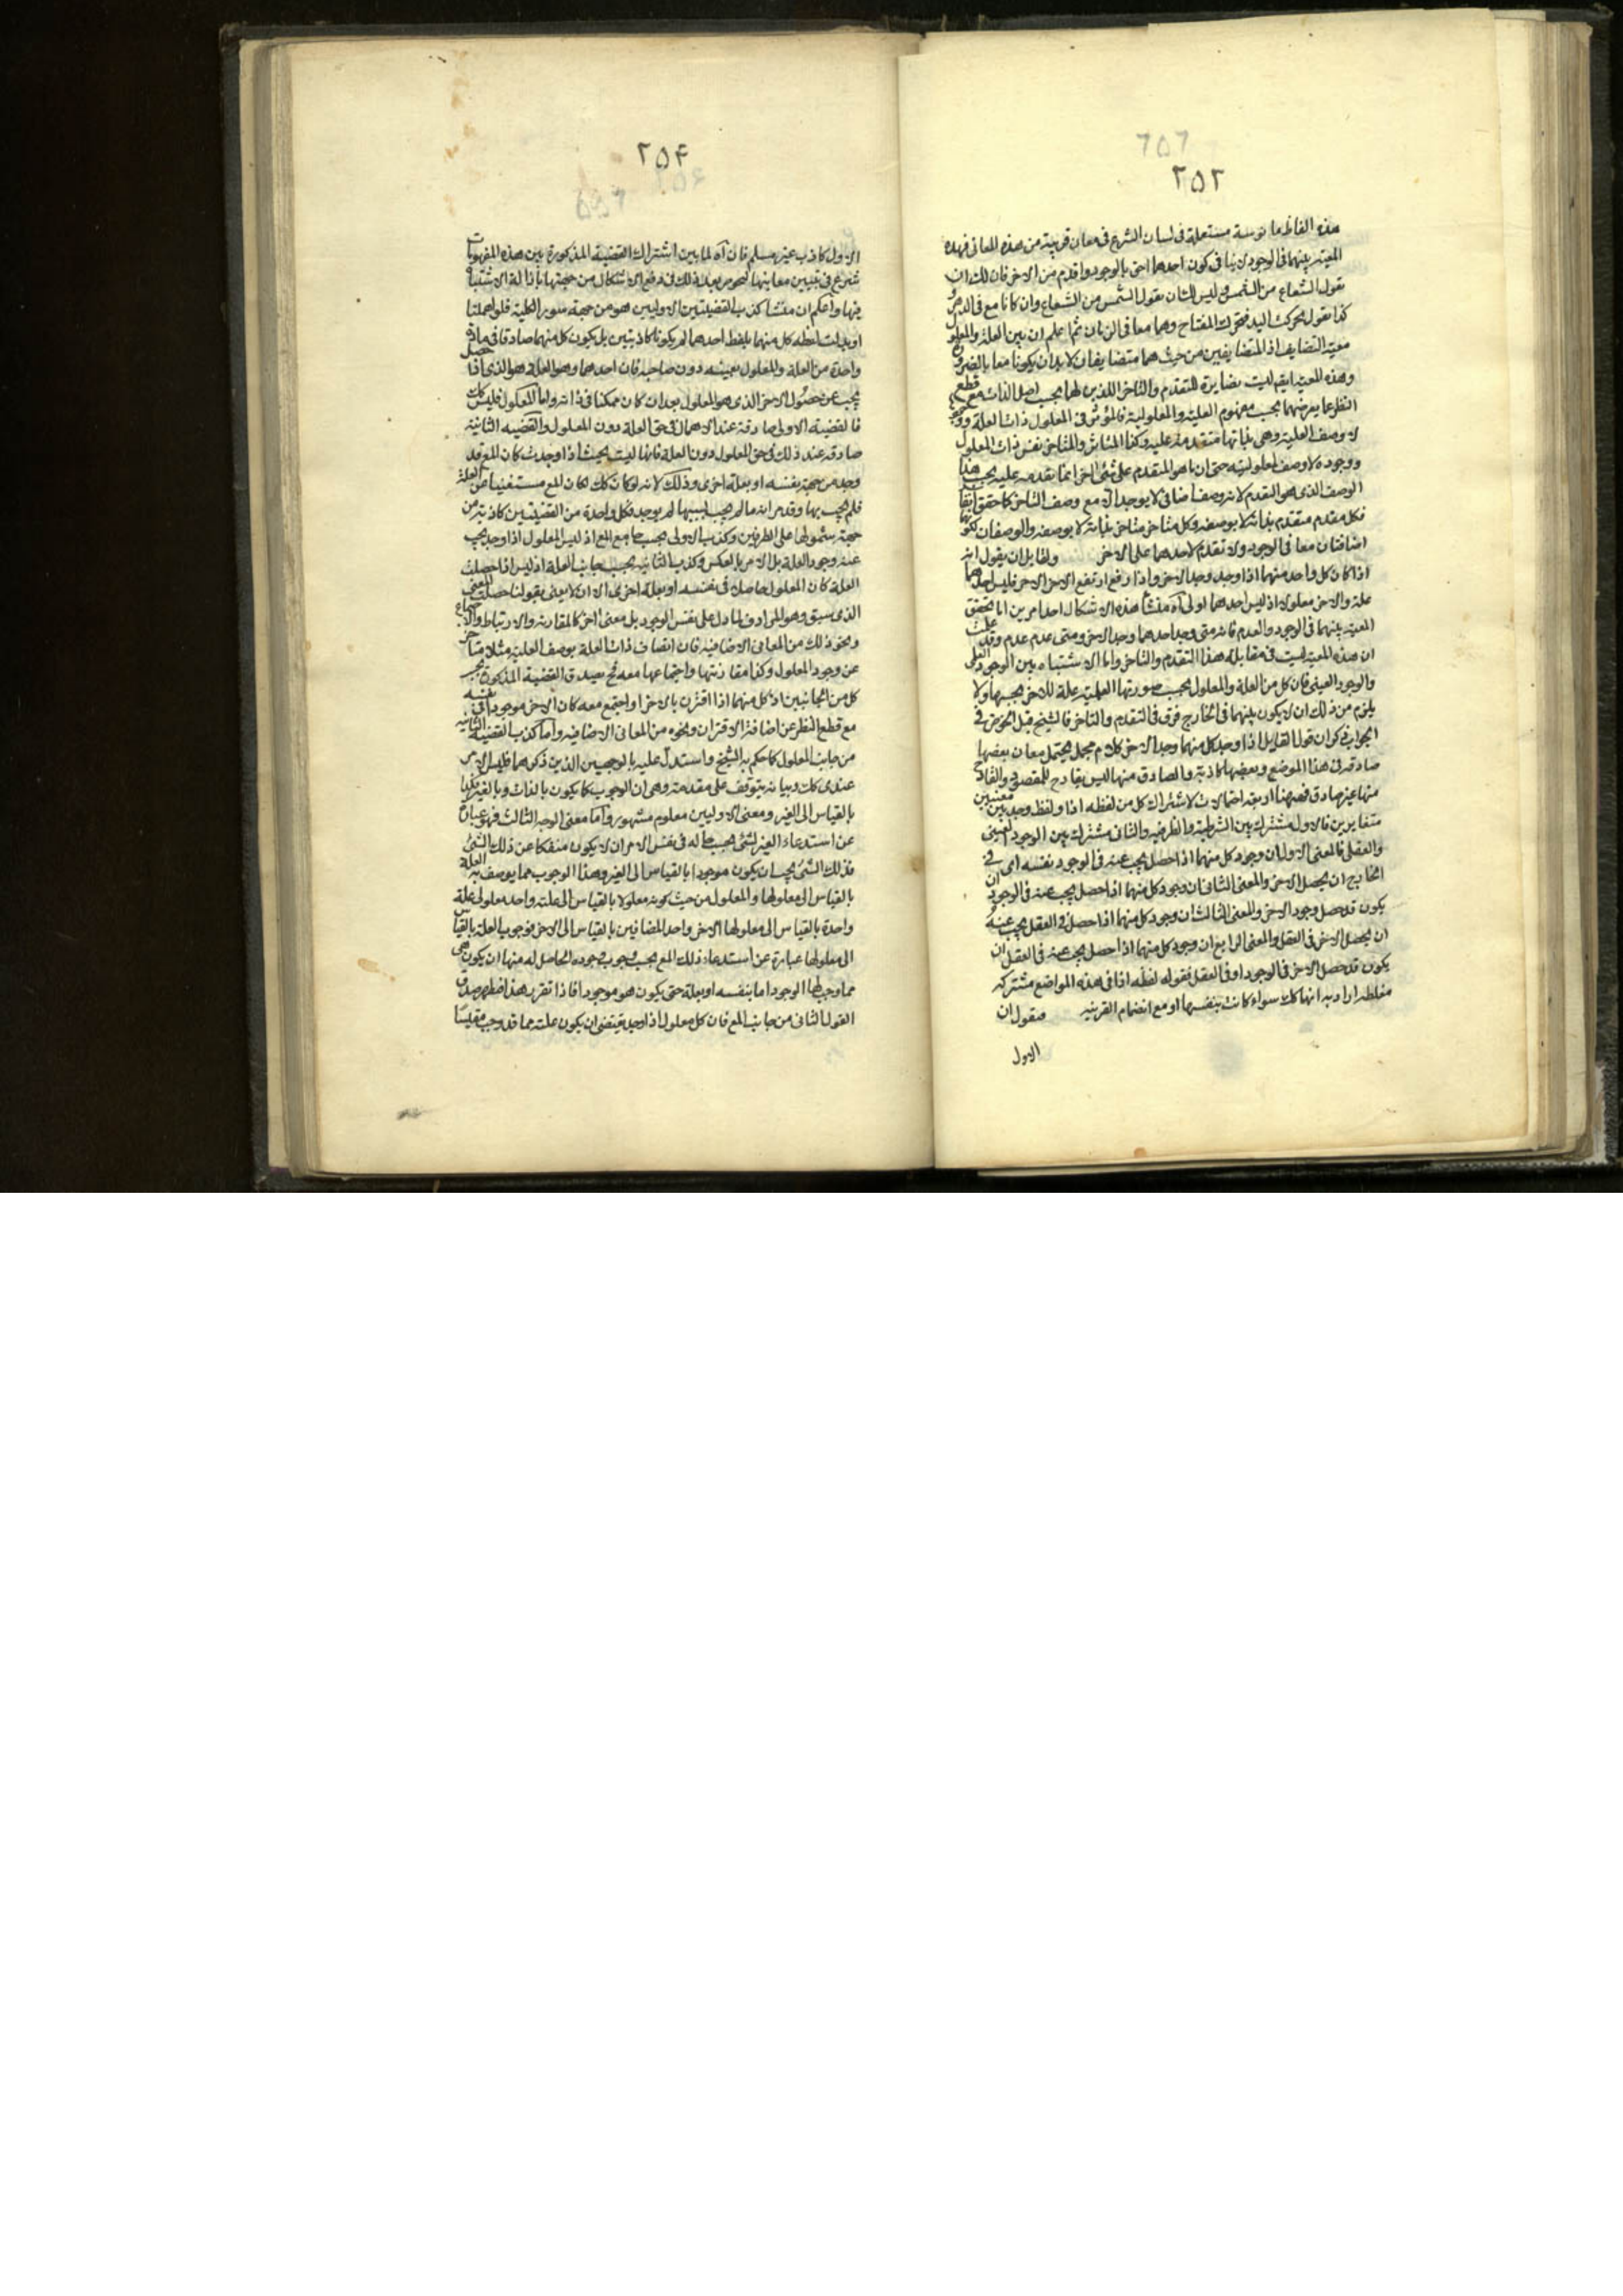 ٢٥٢
هذه الفاظ مانوسة مستعملة فى لسان الشرع فى معان قريبة من هذه المعانى فهذه
المعية بينهما فى الوجود لاينافى كون احدهما احق بالوجود واقدم من الاخر فان لك ان
تقول الشعاع من الشمس وليس لك ان تقول الشمس من الشعاع وان كانا مع فى الزمان و
كذا تقول تحركت اليد فتحرك المفتاح وهما معا فى الزمان ثم اعلم ان بين العلة والمعلول
معية التضايف اذ المتضايفين من حيث هما متضايفان لابد ان يكونا معا بالضرورة
وهذه المعية ايضا ليست بضايرة للتقدم والتاخر اللذين لهما بحسب اصل الذات مع قطع
النظر عما يعرضهما بحسب مفهوم العلية والمعلولية فالمؤثر فى المعلول ذات العلة ووجودها
لا وصف العلية وهى بذاتها متقدمة عليه وكذا المتاثر والمتاخر نفس ذات المعلول
ووجوده لا وصف المعلولية حتى ان ما هو المتقدم على شئ اخر انما تقدمه عليه بحسب هذا
الوصف الذى هو التقدم لانه وصف اضافى لا يوجد الا مع وصف التاخر كما حقق ايضا
فكل متقدم متقدم بذاته لا بوصفه وكل متاخر متاخر بذاته لا بوصفه والوصفان لكونهما
اضافتان معا فى الوجود ولا تقدم لاحدهما على الاخر ولقايل ان يقول انه
اذا كان كل واحد منهما اذا وجد وجد الاخر واذا رفع ارتفع الاخر فليس احدهما
علة والاخر معلولا اذ ليس احدهما اولى اه منشأ هذه الاشكال احد امرين اما تحقق
المعية بينهما فى الوجود والعدم فانه متى وجد احدهما وجد الاخر ومتى عدم عدم وقد علمت
ان هذه المعية ليست فى مقابلة هذا التقدم والتاخر واما الاشتباه بين الوجود العلمى
والوجود العينى فان كل من العلة والمعلول بحسب صورتها العلمية علة للاخر بحسبها ولا
يلزم من ذلك ان لا يكون بينهما فى الخارج فرق فى التقدم والتاخر فالشيخ قبل الخوض فى
الجواب ذكر ان قول القايل اذا وجد كل منهما وجد الاخر كلام مجمل يحتمل معان بعضها
صادقه فى هذا الموضع وبعضها كاذبة والصادق منها ليس بقادح للمقصود والقادح
منها غير صادق فههنا اربعة احتمالات لاشتراك كل من لفظه اذا ولفظ وجد بين معنيين
متغايرين فالاول مشترك بين الشرطية والظرفية والثانى مشترك بين الوجود العينى
والعقلى فالمعنى الاول ان وجود كل منهما اذا حصل يجب عنه فى الوجود نفسه اى فى
الخارج ان يحصل الاخر والمعنى الثانى ان وجود كل منهما اذا حصل يجب عنه فى الوجود ان
يكون قد حصل وجود الاخر والمعنى الثالث ان وجود كل منهما اذا حصل فى العقل يجب عنه
ان يحصل الاخر فى العقل والمعنى الرابع ان وجود كل منهما اذا حصل يجب عنه فى العقل ان
يكون قد حصل الاخر فى الوجود او فى العقل فقوله لفظه اذا فى هذه المواضع مشتركه
مغلطه اراد به انها كك سواء كانت بنفسها او مع انضمام القرينه فنقول ان
الاول
٢٥۴
الاول كاذب غير مسلم فان اه لما بين اشتراك القضية المذكورة بين هذه المفهومات
شرع فى تبيين معاينها ليخوض بعد ذلك فى دفع الاشكال من جهتها بازالة الاشتباه
فيها واعلم ان منشا كذب القضيتين الاوليين هو من جهة سور الكلية فلو اهملنا
او بدلت لفظه كل منهما بلفظ احدهما لم يكونا كاذبتين بل يكون كل منهما صادقا فى مادة
واحدة من العلة والمعلول بعينه دون صاحبه فان احدهما وهو العلة هو الذى اذا حصل
يجب عن حصول الاخر الذى هو المعلول بعد ان كان ممكنا فى ذاته واما المعلول فليس كك
فالقضية الاولى صادقة عند الاهمال فى حق العلة دون المعلول والقضيه الثانية
صادقه عند ذلك فى حق المعلول دون العلة فانها ليست بحيث اذا وجدت كان المع قد
وجد من جهة بنفسه او بعلة اخرى وذلك لانه لو كان كك لكان المع مستغنيا عن العلة
فلم يجب بها وقد مر انه ما لم يجب بسببها لم يوجد فكل واحدة من القضيتين كاذبة من
جهة شمولها على الطرفين وكذب الاولى بحسب جامع المع اذ ليس المعلول اذا وجد يجب
عنه وجود العلة بل الامر بالعكس وكذب الثانية بحسب جانب العلة اذ ليس اذا حصلت
العلة كان المعلول حاصلا فى نفسه او بعلة اخرى الا ان لا يعنى بقولنا حصلت المعنى
الذى سبق وهو المرادف لما دل على نفس الوجود بل معنى اخر كالمقارنة والارتباط والاجتماع
ونحو ذلك من المعانى الاضافية فان اتصاف ذات العلة بوصف العلية مثلا متاخر
عن وجود المعلول وكذا مقارنتها واجتماعها معه فح يصدق القضية المذكورة بحسب
كل من الجانبين اذ كل منهما اذا اقترن بالاخر او اجتمع معه كان الاخر موجودا فى نفسه
مع قطع النظر عن اضافة الاقتران ونحوه من المعانى الاضافيه واما كذب القضية الثانية
من جانب المعلول كما حكم به الشيخ واستدل عليه بالوجهين الذين ذكرهما فليس الامر
عندى كك وبيانه يتوقف على مقدمة وهى ان الوجوب كما يكون بالذات وبالغير يكون
بالقياس الى الغير ومعنى الاوليين معلوم مشهور واما معنى الوجه الثالث فهو عبارة
عن استدعاء الغير لشئ بحسب ما له فى نفس الامر ان لا يكون منفكا عن ذلك الشئ
فذلك الشئ يجب ان يكون موجودا بالقياس الى الغير وهذا الوجوب مما يوصف به العلة
بالقياس الى معلولها والمعلول من حيث كونه معلولا بالقياس الى علته واحد معلولى علة
واحدة بالقياس الى معلولها الاخر واحد المضافين بالقياس الى الاخر فوجوب العلة بالقياس
الى معلولها عبارة عن استدعاء ذلك المع بحسب وجوب وجوده الحاصل له منها ان يكون هى
مما وجب لها الوجود اما بنفسه او بعلة حتى يكون هو موجودا فاذا تقرر هذا فظهر صدق
القول الثانى من جانب المع فان كل معلول اذا وجد يقتضى ان يكون علته مما قد وجب مقيسا